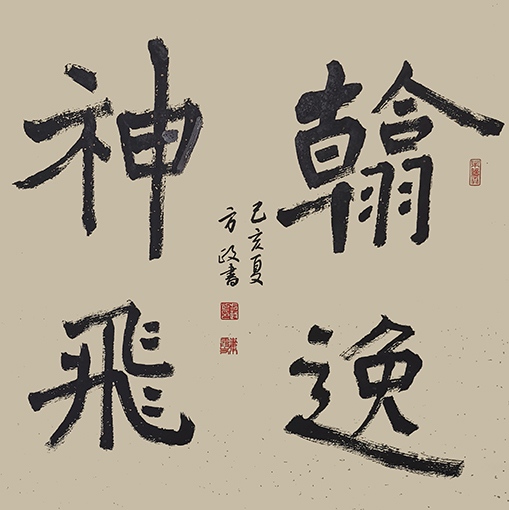 翰逸
神飛
己亥夏
方政書